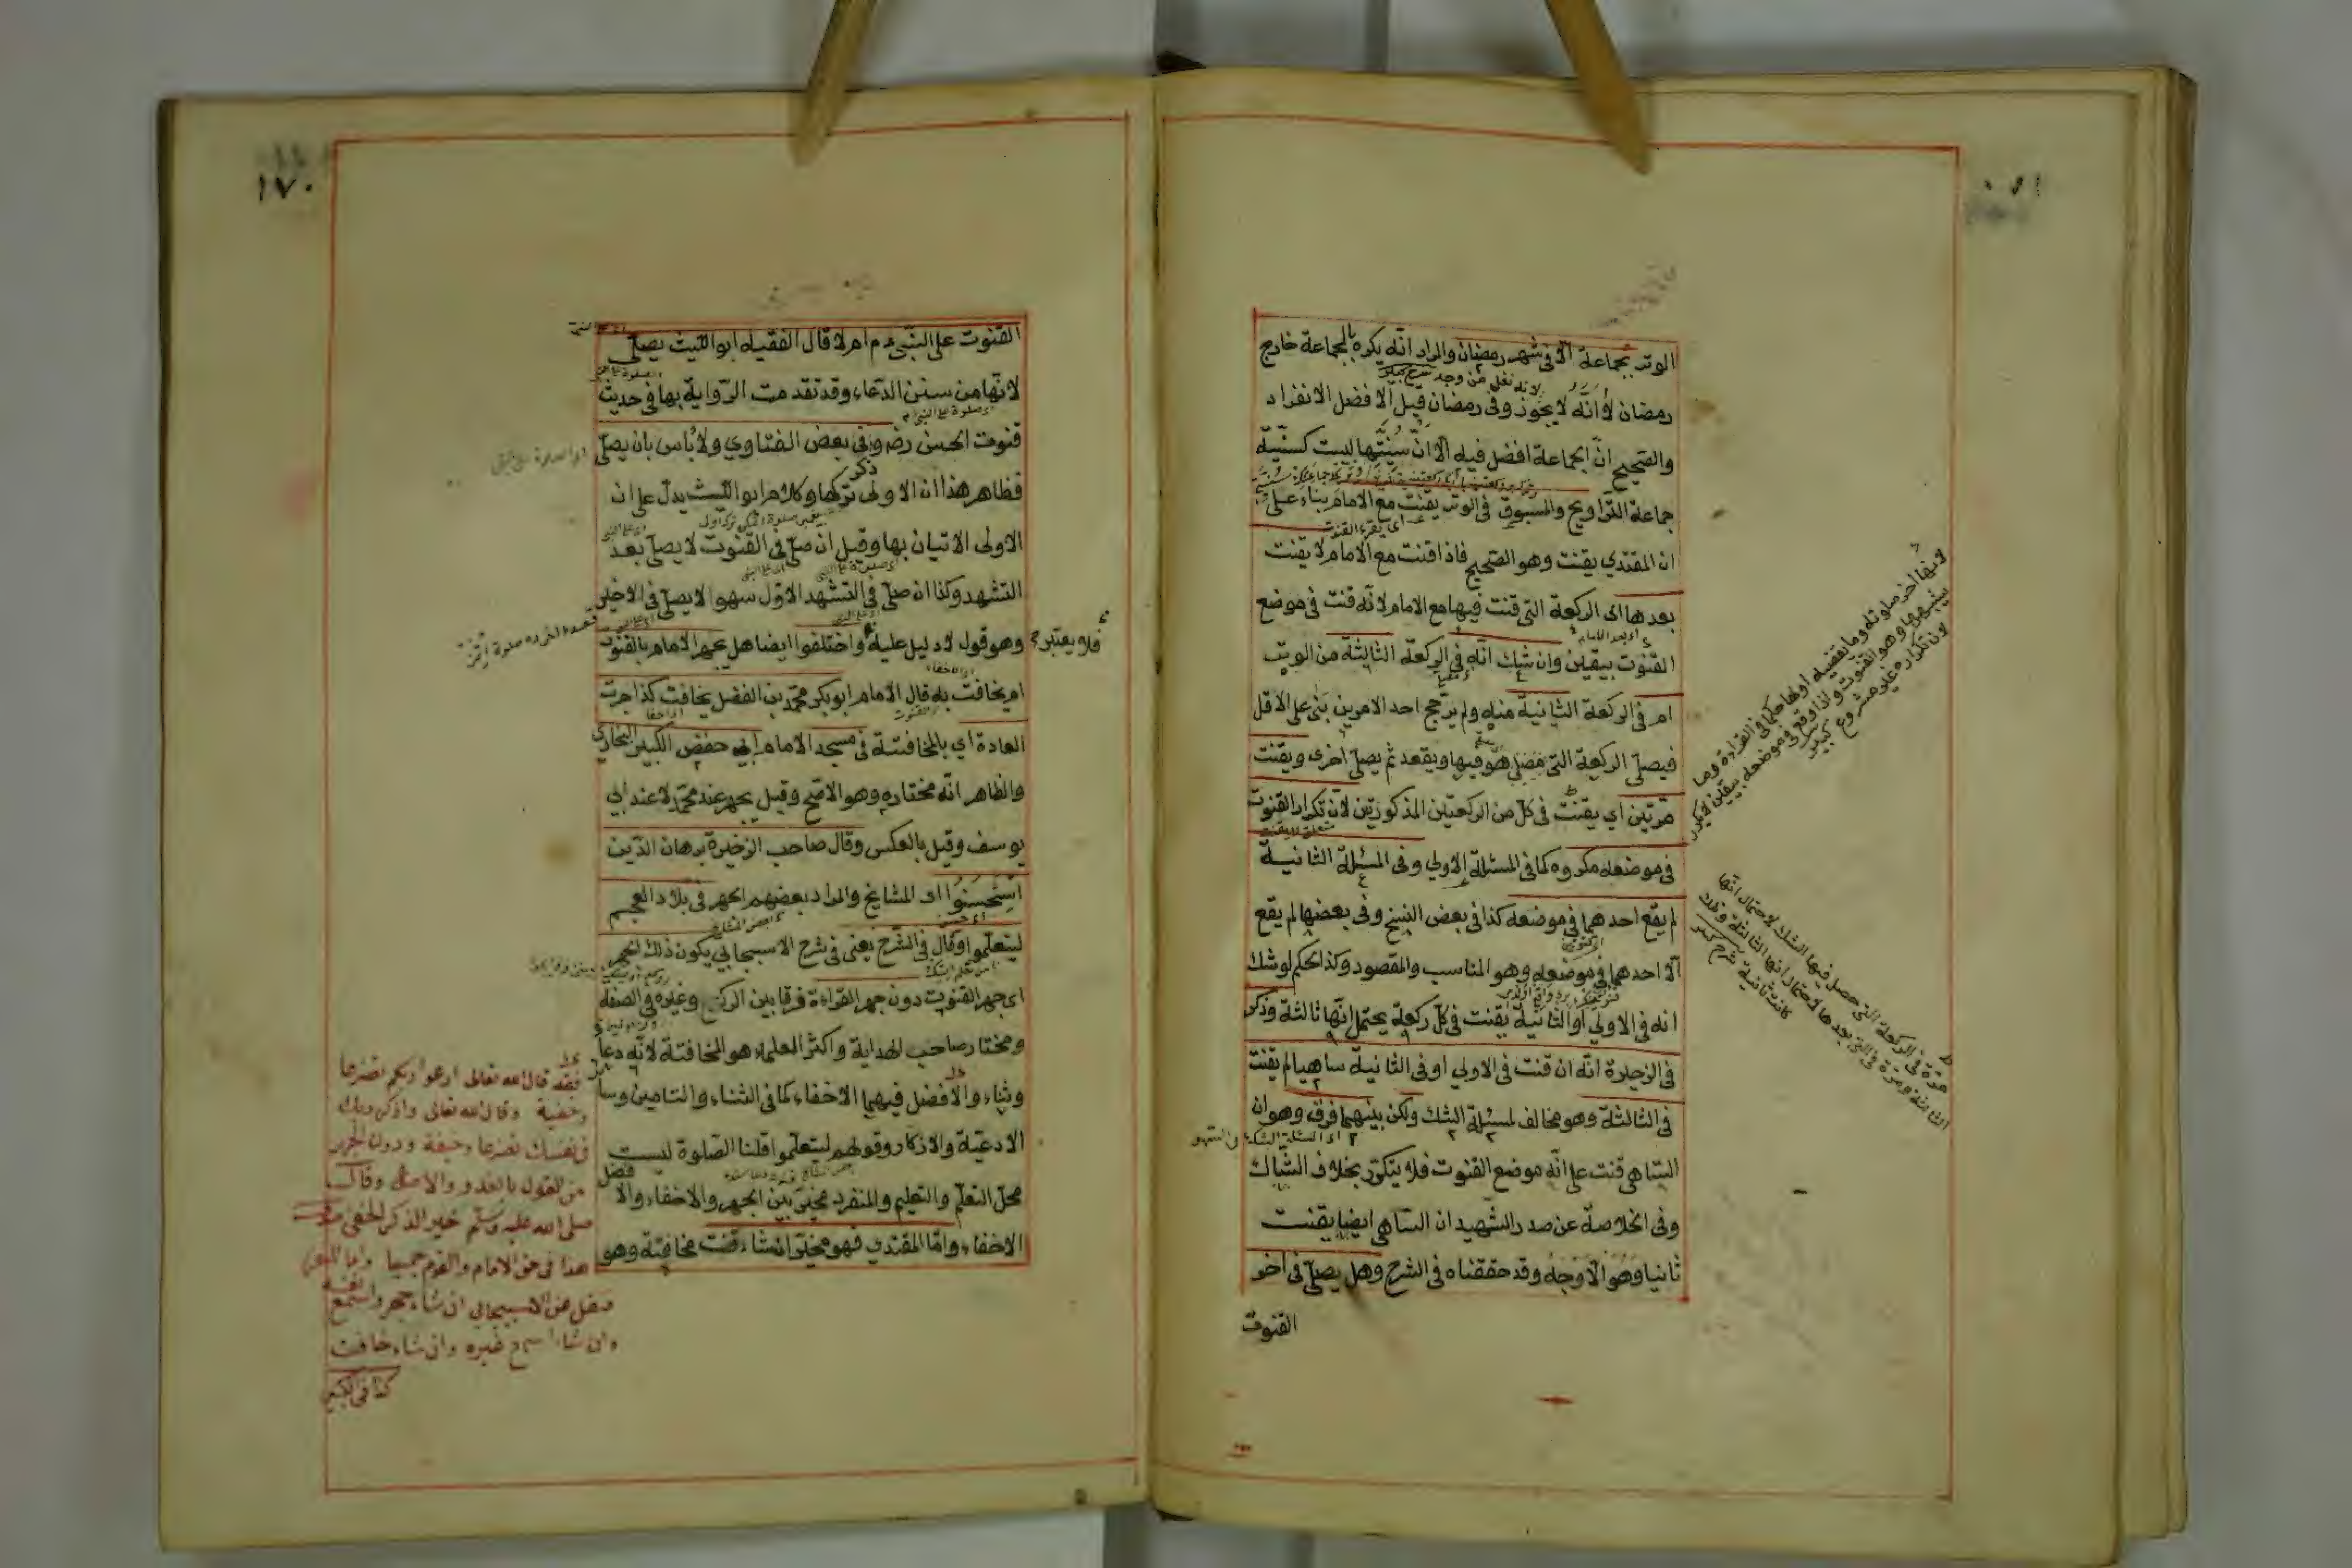 الوتر بجماعة الا فى شهر رمضان والمراد انه يكره بالجماعة خارج
رمضان لا انه لا يجوز وفى رمضان قيل الافضل الانفراد
لانه نفل من وجه شرح كبير
والصحيح ان الجماعة افضل فيه الا ان سنيتها ليست كسنية
جماعة التراويح والمسبوق فى الوتر يقنت مع الامام بناء على
اى يقرء القنوت
ان المقتدي يقنت وهو الصحيح فاذا قنت مع الامام لا يقنت
بعدها اى الركعة التى قنت فيها مع الامام لانه قنت فى موضع
القنوت بيقين وان شك انه فى الركعة الثالثة من الوتر
ام فى الركعة الثانية منه ولم يترجح احد الامرين بنى على الاقل
فيصلى الركعة التى هو فيها ويقعد ثم يصلى اخرى ويقنت
مرتين اي يقنت فى كل من الركعتين المذكورتين لان تكرار القنوت
متعلق لا يقنت
فى موضعه مكروه كما فى المسئلة الاولي وفى المسئلة الثانية
لم يقع احدهما فى موضعه كذا فى بعض النسخ وفى بعضها لم يقع
الا احدهما فى موضعه وهو المناسب والمقصود وكذا الحكم لو شك
انه فى الاولي او الثانية يقنت فى كل ركعة يحتمل انها ثالثة وذكر
فى الذخيرة انه ان قنت فى الاولي او فى الثانية ساهيا لم يقنت
فى الثالثة وهو مخالف لمسئلة الشك ولكن بينهما فرق وهو ان
الساهى قنت على انه موضع القنوت فلا يتكرر بخلاف الشاك
وفى الخلاصة عن صدر الشهيد ان الساهى ايضا يقنت
ثانيا وهو الاوجه وقد حققناه فى الشرح وهل يصلى فى اخر
القنوت
لانها اخر صلوته وما يقضيه اولها حكما فى القراءة وما
يشبهها وهو القنوت واذا وقع فى موضعه بيقين لا يكرر
لان تكراره غير مشروع كبير
مرة فى الركعة التى حصل فيها الشك لاحتمال انها
الثالثة ومرة فى التى بعدها لاحتمال انها الثالثة وتلك
كانت ثانية شرح كبير
١٧٠
القنوت على النبى ع م ام لا قال الفقيه ابو الليث يصلى
لانها من سنن الدعاء وقد تقدمت الرواية بها فى حديث
اى صلوة على النبى ع م
قنوت الحسن رضه وفى بعض الفتاوي ولا بأس بان يصلى
فظاهر هذا ان الاولى تركها وكلام ابو الليث يدل على ان
ذكر
الاولى الاتيان بها وقيل ان صلى فى القنوت لا يصلى بعد
التشهد وكذا ان صلى فى التشهد الاول سهوا لا يصلى فى الاخير
وهو قول لا دليل عليه واختلفوا ايضا هل يجهر الامام بالقنوت
فلا يعتبر
ام يخافت به قال الامام ابو بكر محمد بن الفضل يخافت كذا جرت
العادة اي بالمخافتة فى مسجد الامام ابي حفص الكبير البخاري
والظاهر انه مختاره وهو الاصح وقيل يجهر عند محمد لا عند ابي
يوسف وقيل بالعكس وقال صاحب الذخيرة برهان الدين
استحسنوا اى المشايخ والمراد بعضهم الجهر فى بلاد العجم
ليتعلموا وقال فى الشرح يعنى فى شرح الاسبيجابي يكون ذلك الجهر
اى جهر القنوت دون جهر القراءة فرقا بين الركن وغيره فى الصفة
ومختار صاحب الهداية واكثر العلماء هو المخافتة لانه دعاء
وثناء والافضل فيهما الاخفاء كما فى الثناء والتامين وسائر
الادعية والاذكار وقولهم ليتعلموا قلنا الصلوة ليست
محل التعلم والتعليم والمنفرد مخير بين الجهر والاخفاء والا
فضل
الاخفاء واما المقتدي فهو مخير ان شاء قنت مخافتة وهو
فقد قال الله تعالى ادعوا ربكم تضرعا
وخفية وقال الله تعالى واذكر ربك
فى نفسك تضرعا وخيفة ودون الجهر
من القول بالغدو والاصال وقال
صلى الله عليه وسلم خير الذكر الخفى
هذا فى حق الامام والقوم جميعا واما المنفرد
فنقل عن الاسبيجابي ان شاء جهر واسمع نفسه
وان شاء اسمع غيره وان شاء خافت
كذا فى الكبير